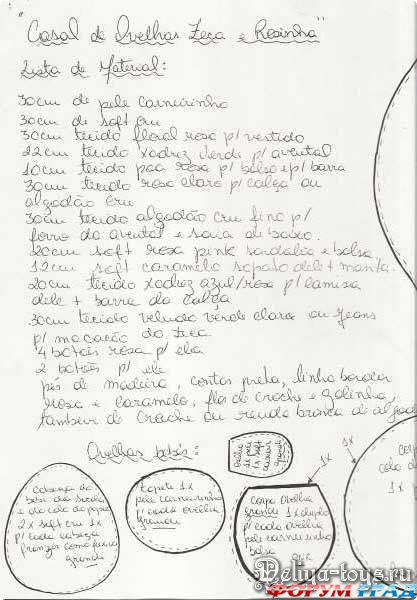 "Casal de Ovelhas Zeca e Rosinha"
Lista de Material:
30cm de pele carneirinho
30cm de soft cru
30cm tecido floral rosa p/ vestido
22cm tecido xadrez verde p/ avental
10cm tecido poa rosa p/ bolso e p/ barra
30cm tecido rosa claro p/ calça ou
algodão cru
30cm tecido algodão cru fino p/
forro do avental e saia de baixo.
20cm soft rosa pink sandalia e bolsa
12cm soft caramelo sapato dele + manta.
20cm tecido xadrez azul/rosa p/ camisa
dele + barra da calça
30cm tecido veludo verde claro ou jeans
p/ macacão do Zeca
4 botões rosa p/ ela
2 botões p/ ele
pés de madeira, contas preta, linha bordar
rosa e caramelo, flor de croche e golinha,
tambem de croche ou renda branca de algod
Ovelhas bebês:
Orelha
soft
1x
1x
Cabeça do
bebe
2x soft cru 1x
p/ cada cabeça
franzir como fuxico
grande
Topete 1x
pele carneirinho
p/ cada ovelha
grande
Corpo Ovelha
grande 1x duplo
p/ cada ovelha
pele carneirinho
bolsa
corp
1x
Deliya-toys.ru
ФОРУМГРАД